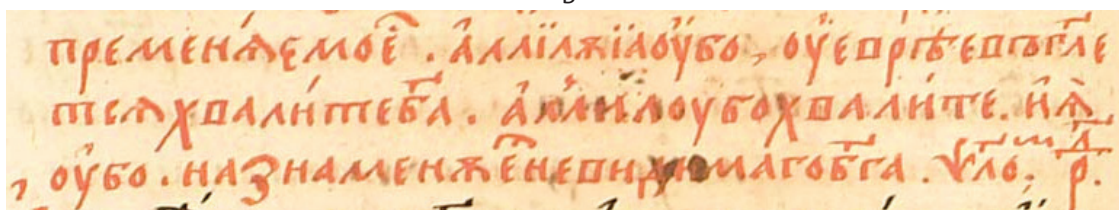 преминѧ́емоё . а҆ллїлѫїаоу҆бо , оу҆еврѣевъгл҃е
тсѧхвали́теб҃а . а҆ллилоубохвали́те . и҆ꙗ
оу҆бо . назнаменѫе҆невидимагоб҃га . ѱ҃ло . р҃